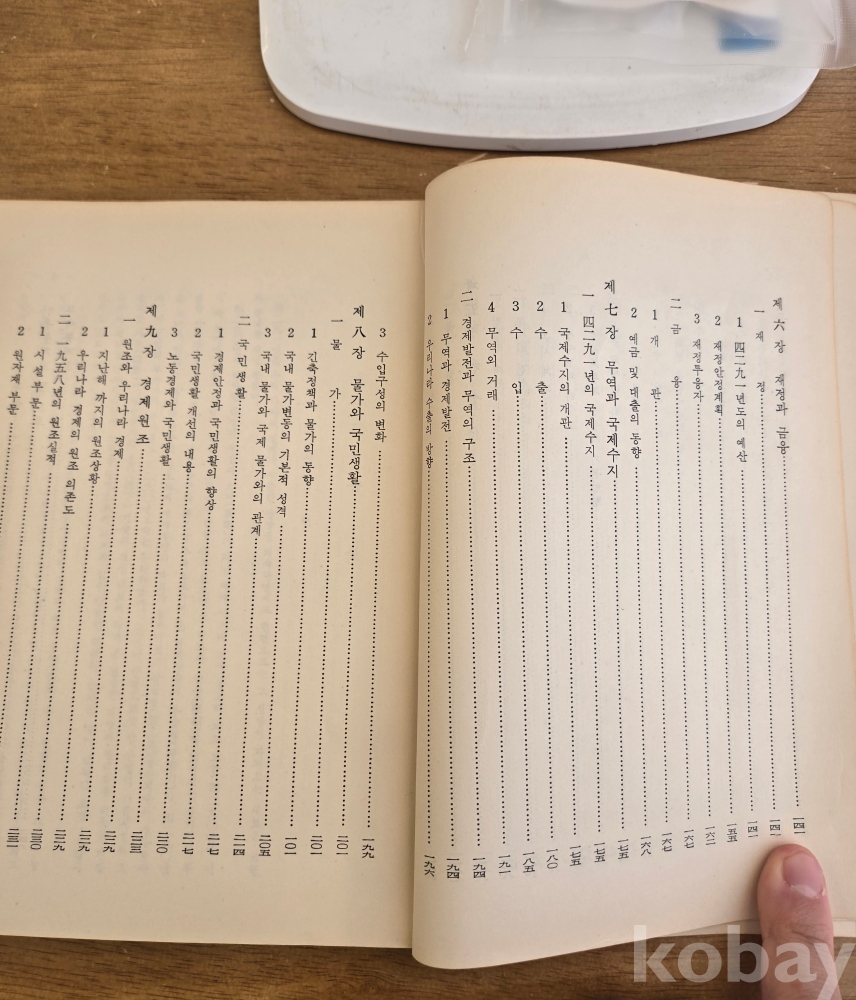 제 六 장 재정과 금융 一四一
一 재 정 一四一
1 四二九一년도의 예산 一四一
2 재정안정계획 一五五
3 재정투융자 一六二
二 금 융 一六七
1 개 관 一六七
2 예금 및 대출의 동향 一六八
제 七 장 무역과 국제수지 一七五
一 四二九一년의 국제수지 一七五
1 국제수지의 개관 一七五
2 수 출 一八〇
3 수 입 一八五
4 무역의 거래 一九一
二 경제발전과 무역의 구조 一九四
1 무역과 경제발전 一九四
2 우리나라 수출의 방향 一九六
3 수입구성의 변화 一九九
제 八 장 물가와 국민생활 二〇一
一 물 가 二〇一
1 긴축정책과 물가의 동향 二〇一
2 국내 물가변동의 기본적 성격
3 국내 물가와 국제 물가와의 관계 二〇五
二 국민생활 二一四
1 경제안정과 국민생활의 향상
2 국민생활 개선의 내용 二一七
3 노동경제와 국민생활 二二〇
제 九 장 경제원조
一 원조와 우리나라 경제
1 지난해 까지의 원조상황
2 우리나라 경제의 원조 의존도
二 一九五八년의 원조실적 二二九
1 시설부문 二三〇
2 원자재 부문 二三一
kobay